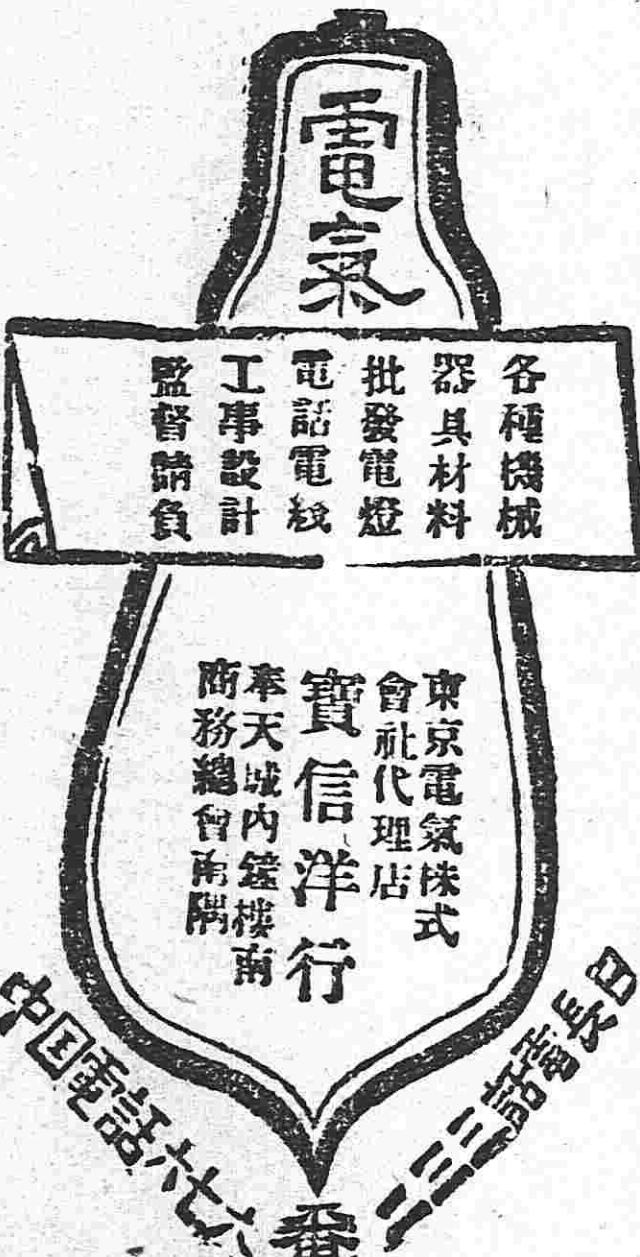 電氣
各種機械
器具材料
批發電燈
電話電綫
工事設計
監督請負
東京電氣株式
會社代理店
寶信洋行
奉天城內鐘樓南
商務總會南隅
日長電話三三二
中国電話六十六
番